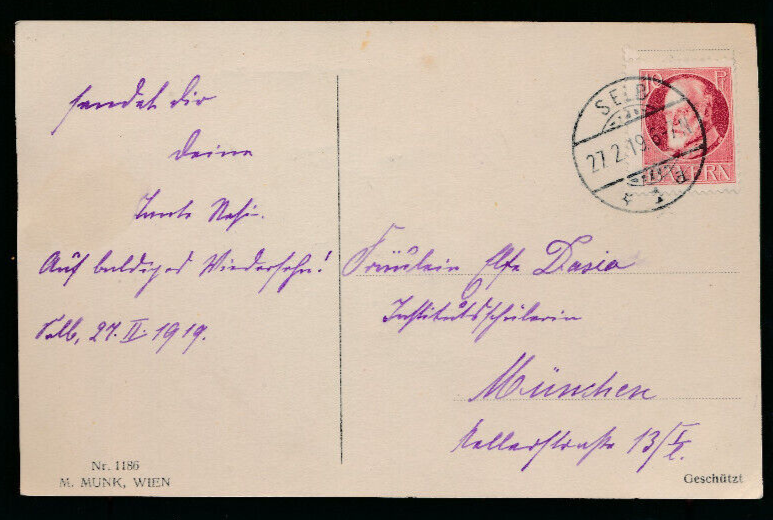 sendet dir
deine
Tante Resi.
Auf baldiges Wiedersehn!
Selb, 27. II. 1919.
Nr. 1186
M. MUNK, WIEN
SELB
27.2.19.
BAYERN
Fräulein Else
Institutsschülerin
München
Kellerstraße 13/I
Geschützt